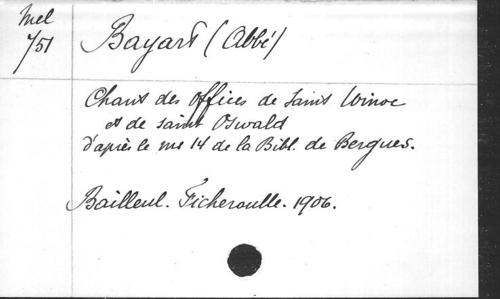 Mel
751
Bayart (Abbé)
Chant des Offices de Saint Winoc
et de saint Oswald
d'après le ms 14 de la Bibl. de Bergues.
Bailleul. Ficheroulle. 1906.